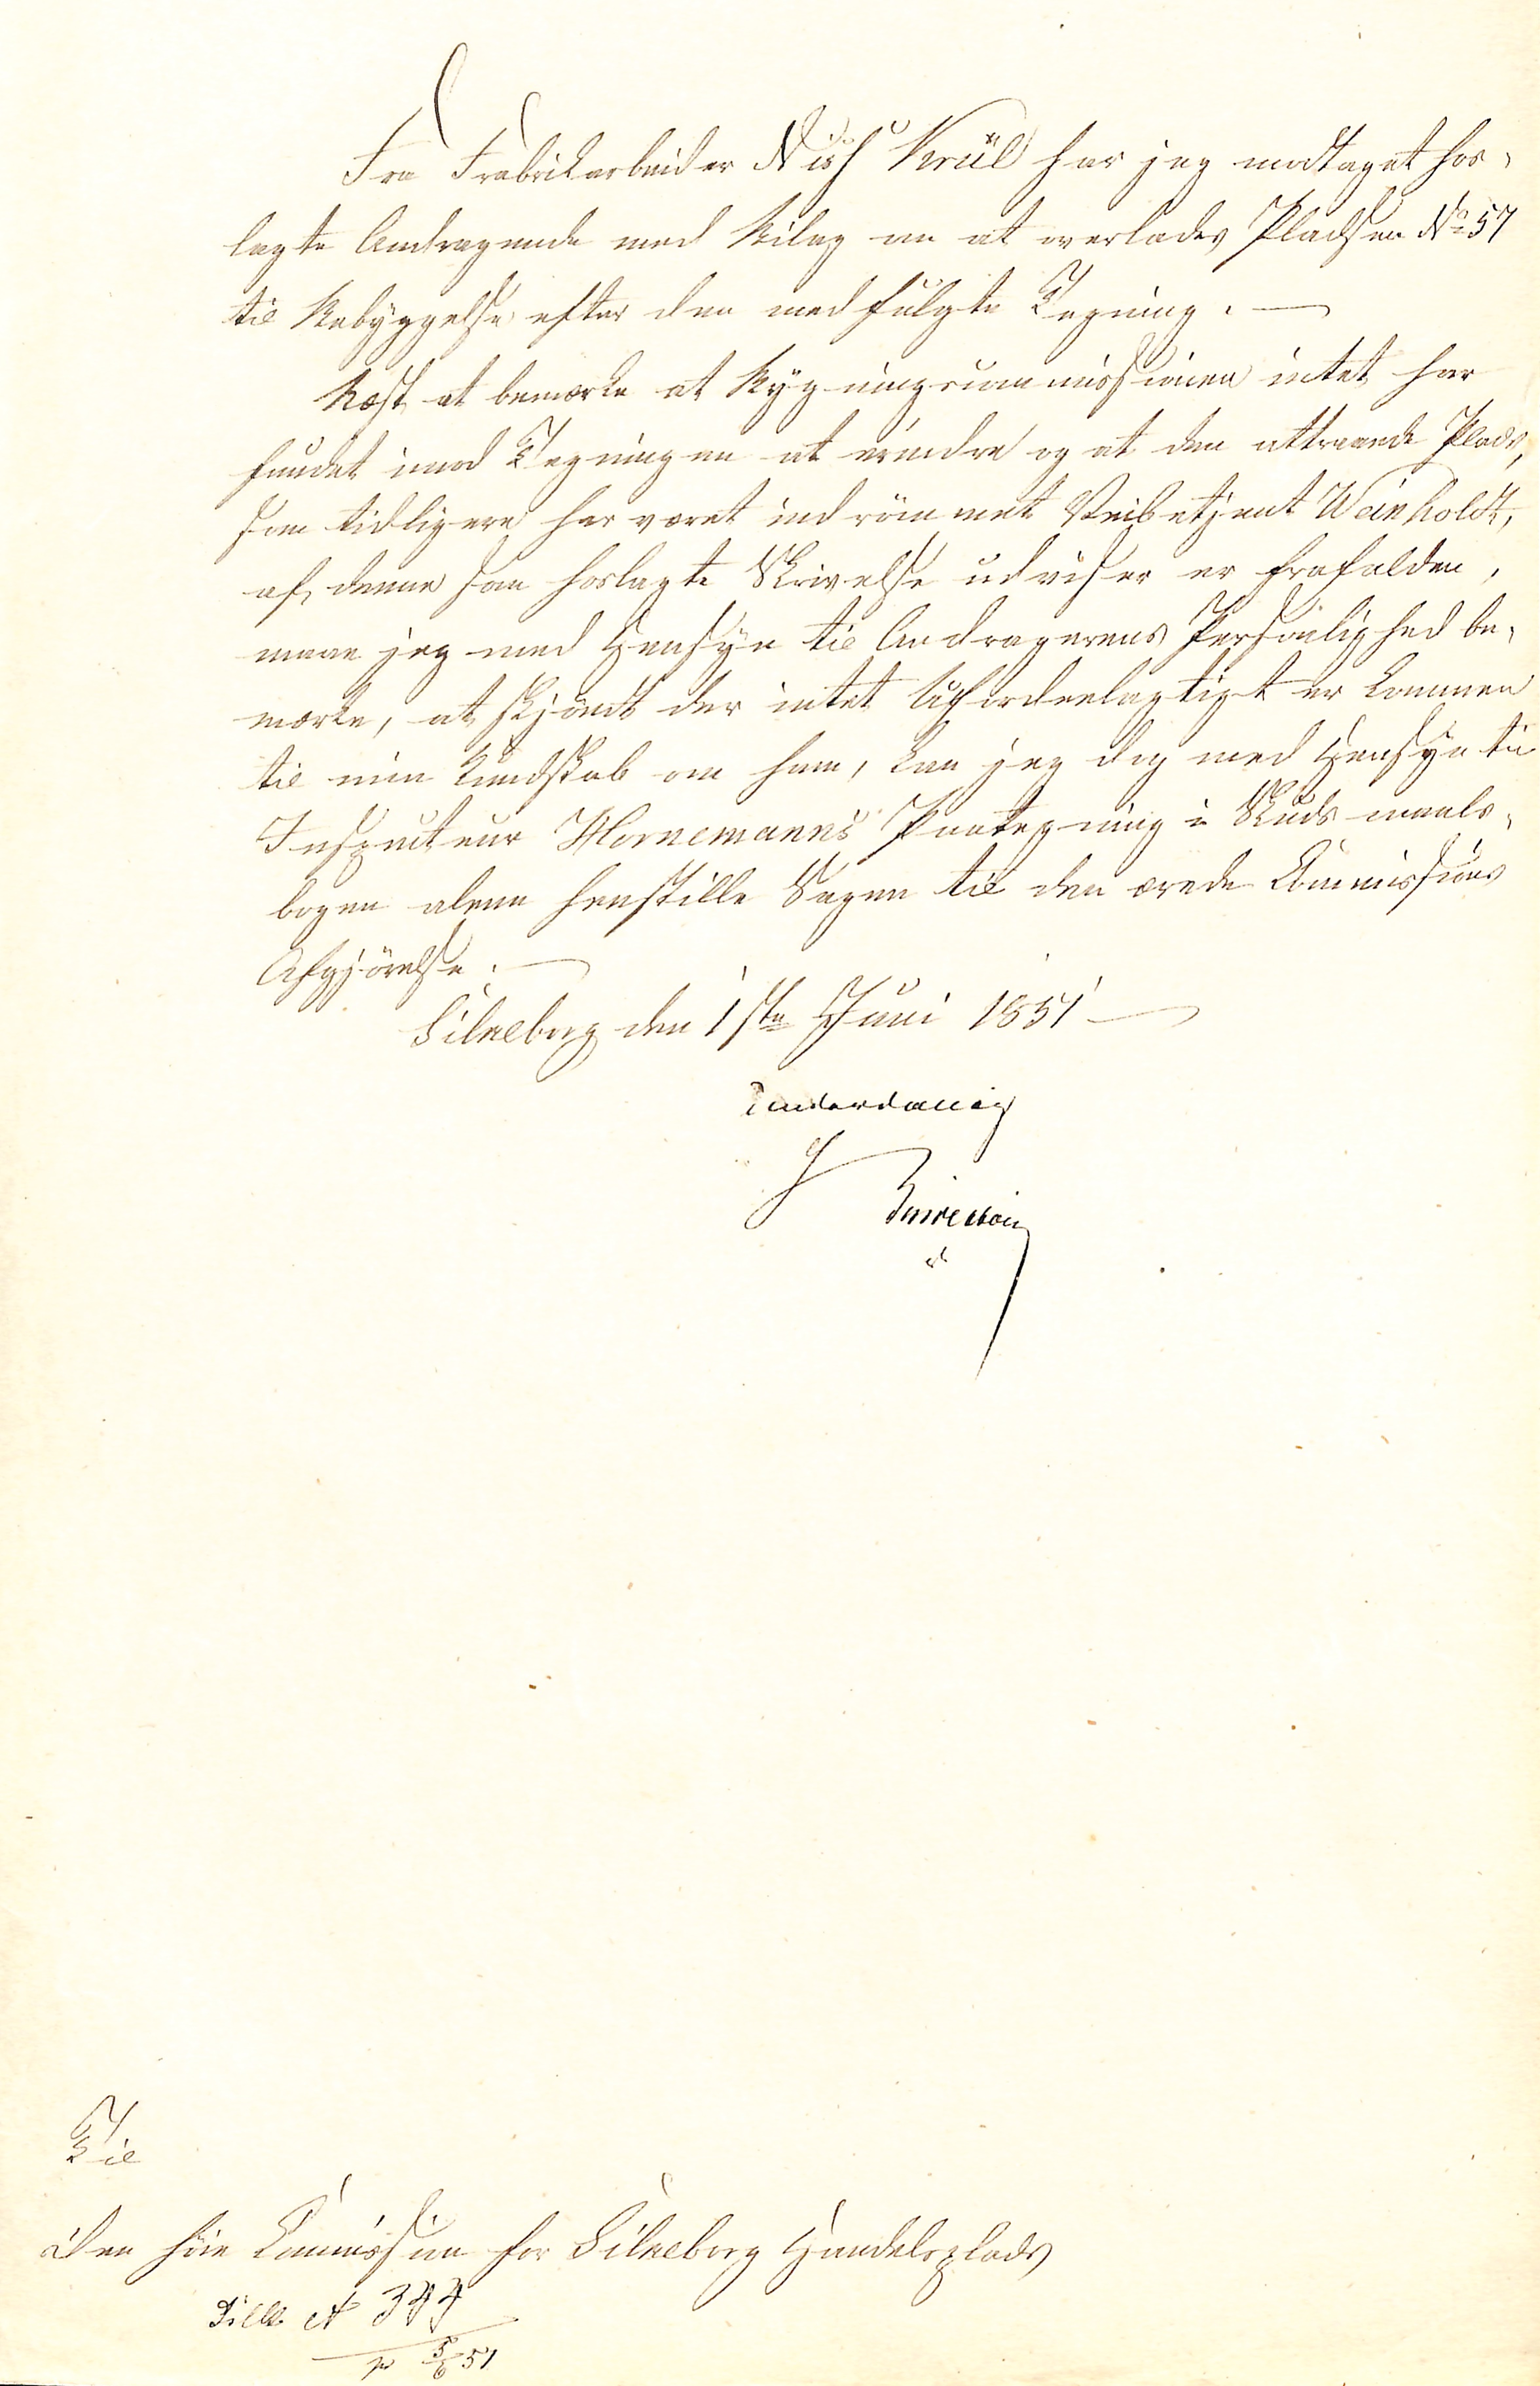 Fra Fabrikarbeider Krül har jeg modtaget hos-
lagte Andragende med Bilag om at overlades Pladsen No 57
til Bebyggelse efter den medfulgte Tegning. —
Næst at bemærke at Bygningscommissionen intet har
fundet imod Tegningen at erindre og at den attraaede Plads,
som tidligere har været indrömmet Veibetjent Weinholdt,
af denne som hoslagte Skrivelse udviser er frafalden,
maae jeg med Hensyn til Andragerens Personlighed be-
mærke, at skjöndt der intet Ufordeelagtigt er kommen
til min Kundskab om ham, kan jeg dog med Hensyn til
Inspecteur Hornemanns Paategning i Skudsmaals-
bogen alene henstille Sagen til den ærede Commissions
Afgjörelse. —
Silkeborg den 1ste Juni 1851 —
Underdanig
Til
Den höie Commission for Silkeborg Handelsplads
Silk. № 344
pr 5/6 51